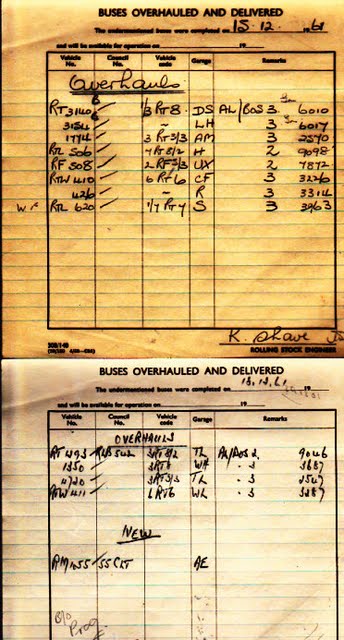 BUSES OVERHAULED AND DELIVERED
The undermentioned buses were completed on 15.12. 1961
and will be available for operation on 19
Vehicle No. Council No. Vehicle code Garage Remarks
Overhauls
RT 3140 1/3 RT8 DS AL/BOS 3 6010
3154 ~ LH 3 6017
1774 3 RT3/3 AM 3 2570
RTL 506 4 RT8/2 H 2 9098
RF 508 2 RF5/3 UX 2 7872
RTW 410 6 RT6 CF 3 3226
426 ~ R 3 3314
RTL 620 1/7 RT7 S 3 3963
K. Shave
ROLLING STOCK ENGINEER
BUSES OVERHAULED AND DELIVERED
The undermentioned buses were completed on 15.12.61 19
and will be available for operation on 19
Vehicle No. Council No. Vehicle code Garage Remarks
OVERHAULS
RT 493 RLB 542 3RT8/2 TL AL/BOS 2. 9046
1350 3RT8 WH " 3 3687
4720 3RT3/3 TL " 3 2547
RTW 411 6RT6 WL " 3 3287
NEW
RM 1055 55 CLT AE